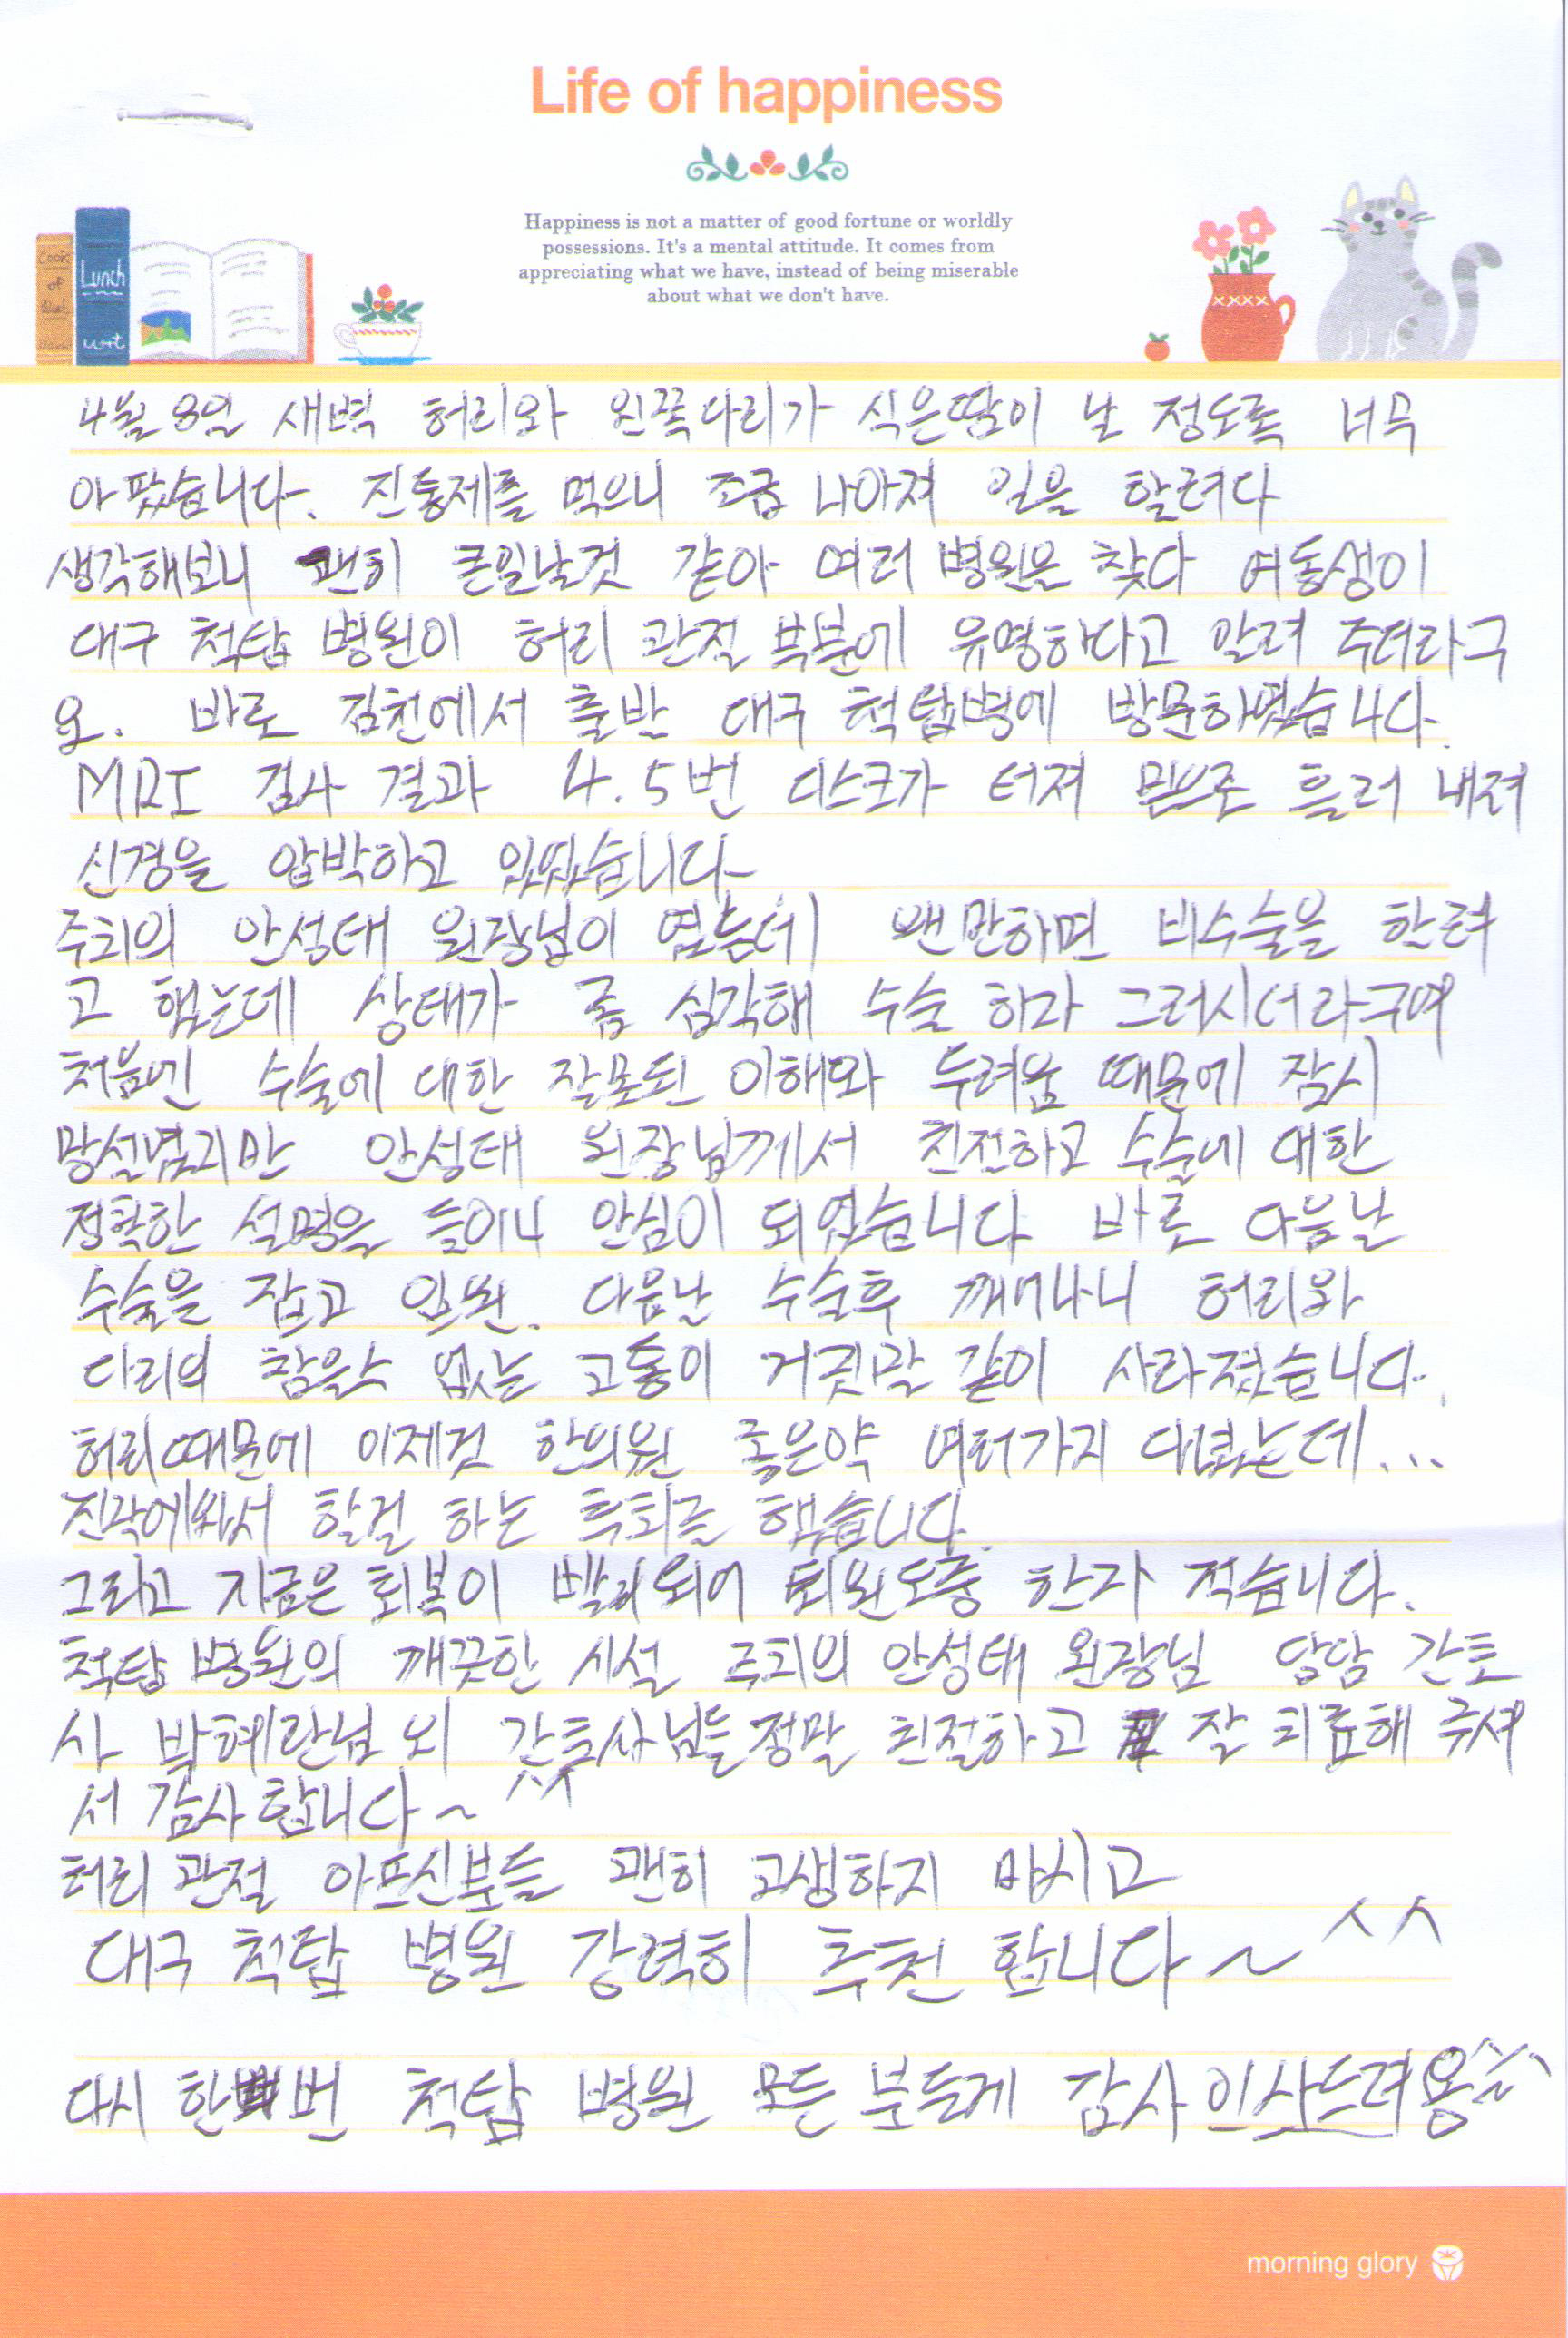 Life of happiness
Happiness is not a matter of good fortune or worldly
possessions. It's a mental attitude. It comes from
appreciating what we have, instead of being miserable
about what we don't have.
Cook
of
Lunch
wort
4월 8일 새벽 허리와 왼쪽다리가 식은땀이 날 정도록 너무
아팠습니다. 진통제를 먹으니 조금 나아져 일을 할려다
생각해보니 괜히 큰일날것 같아 여러 병원을 찾다 여동생이
대구 척탑 병원이 허리 관절 부분에 유명하다고 알려 주더라구
요. 바로 김천에서 출발 대구 척탑병에 방문하였습니다.
MRI 검사 결과 4.5번 디스크가 터져 밑으로 흘러 내려
신경을 압박하고 있었습니다
주치의 안성태 원장님이 였는데 왠만하면 비수술을 할려
고 했는데 상태가 좀 심각해 수술 하자 그러시더라구여
처음엔 수술에 대한 잘못된 이해와 두려움 때문에 잠시
망설였지만 안성태 원장님께서 친절하고 수술에 대한
정확한 설명을 들이니 안심이 되었습니다 바로 다음날
수술을 잡고 입원. 다음날 수술후 깨어나니 허리와
다리의 참을수 없는 고통이 거짓말 같이 사라졌습니다.
허리때문에 이제것 한의원 좋은약 여러가지 다녔는데...
진작에와서 할걸 하는 후회를 했습니다.
그리고 지금은 회복이 빨리되어 퇴원도중 한자 적습니다.
척탑 병원의 깨끗한 시설 주치의 안성태 원장님 담담 간호
사 박혜란님 외 간호사님들 정말 친절하고 잘 치료해 주셔
서 감사합니다~ ^^
허리 관절 아프신분들 괜히 고생하지 마시고
대구 척탑 병원 강력히 추천 합니다~ ^^
다시 한번 척탑 병원 모든 분들게 감사인사드려용^^
morning glory